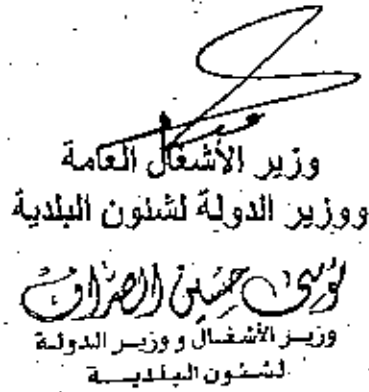 وزير الأشغال العامة
ووزير الدولة لشئون البلدية
موسى حسين الصراف
وزير الأشغال و وزير الدولة
لشئون البلدية